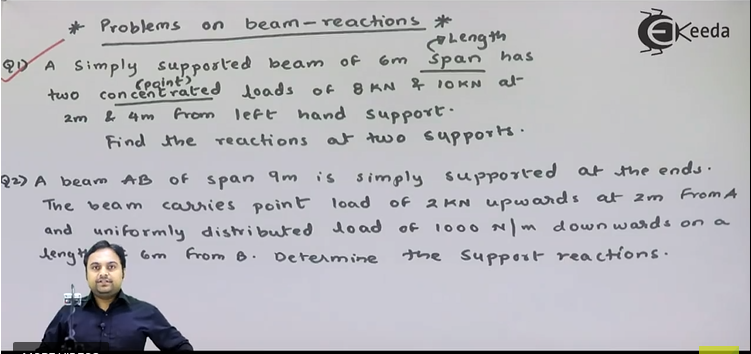 * Problems on beam-reactions *
Length
Q1) A simply supported beam of 6m span has
(point)
two concentrated loads of 8 KN & 10KN at
2m & 4m from left hand support.
Find the reactions at two supports.
Q2) A beam AB of span 9m is simply supported at the ends.
The beam carries point load of 2 KN upwards at 2m from A
and uniformly distributed load of 1000 N/m downwards on a
6m from B. Determine the support reactions.
Ekeeda